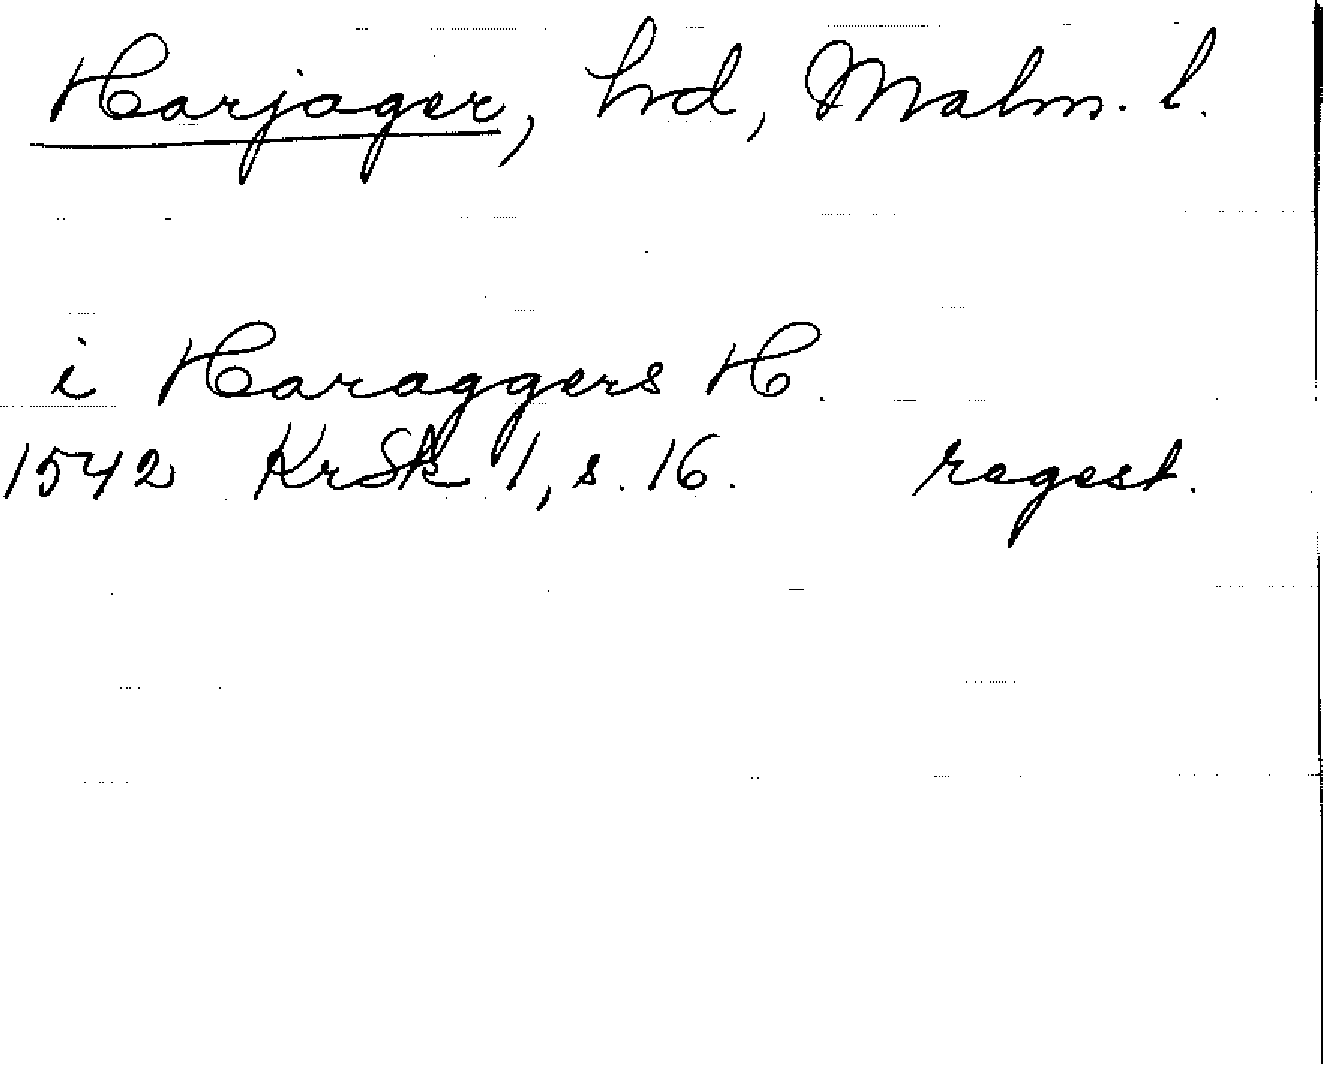 Harjager, hd, Malm. l.
i Haraggers H.
1542 KrSk 1, s. 16. regest.